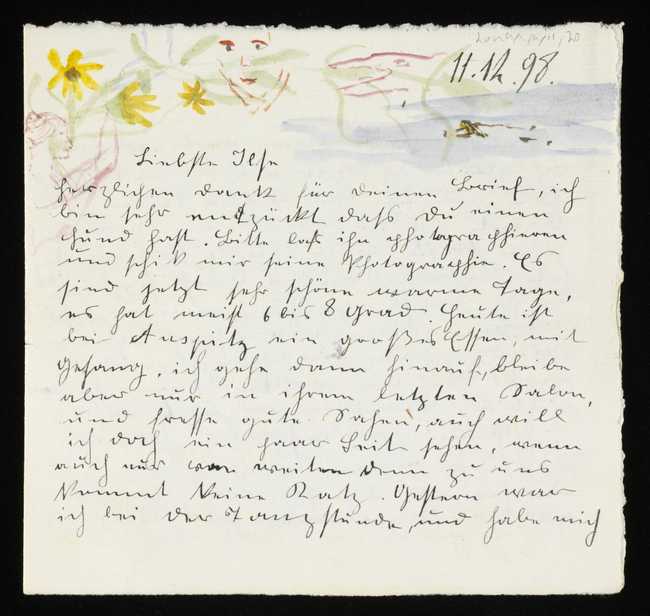 11.12.98.
Liebste Ilse
herzlichen dank für deinen Brief, ich
bin sehr entzückt daſs du einen
hund hast. Bitte laſs ihn photographieren
und schik mir seine Photographie. Es
sind jetzt sehr schöne warme Tage,
es hat meist 6 bis 8 Grad. heute ist
bei Auspitz ein großes Essen, mit
Gesang, ich gehe dann hinauf, bleibe
aber nur in ihrem letzten Salon,
und fresse gute Sahen, auch will
ich doch ein paar Leit sehen, wenn
auch nur von weiten denn zu uns
kommt keine Katz. Gestern war
ich bei der Tanzstunde, und habe mich